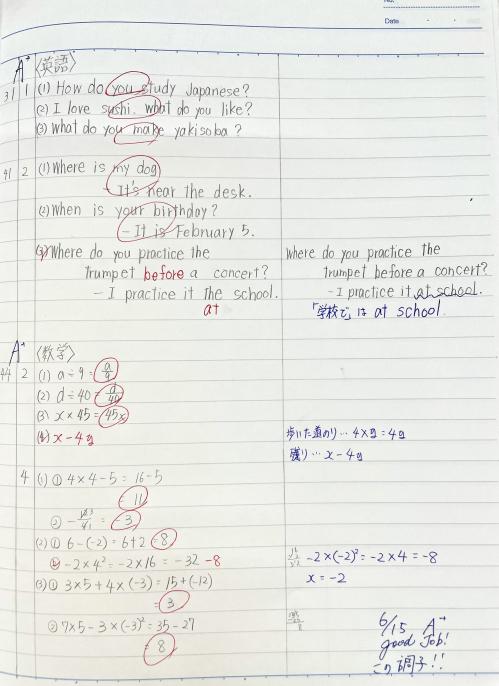 No.
Date
A+ 〈英語〉
31 1 (1) How do you study Japanese?
(2) I love sushi. what do you like?
(3) What do you make yakisoba?
41 2 (1) Where is my dog
- It's near the desk.
(2) When is your birthday?
- It is February 5.
(3) Where do you practice the
trumpet before a concert?
- I practice it the school.
at
Where do you practice the
trumpet before a concert?
- I practice it at school.
「学校で」は at school.
A+ 〈数学〉
44 2 (1) a÷9 = a/9
(2) d÷40 = d/40
(3) x×45 = 45x
(4) x-4g
歩いた道のり…4×g=4g
残り…x-4g
4 (1) ① 4×4-5 = 16-5
= 11
② = -3
(2) ① 6-(-2) = 6+2 = 8
② -2×4² = -2×16 = -32 -8
-2×(-2)² = -2×4 = -8
x = -2
(3) ① 3×5+4×(-3) = 15+(-12)
= 3
② 7×5-3×(-3)² = 35-27
= 8
6/15 A+
good Job!
この調子!!